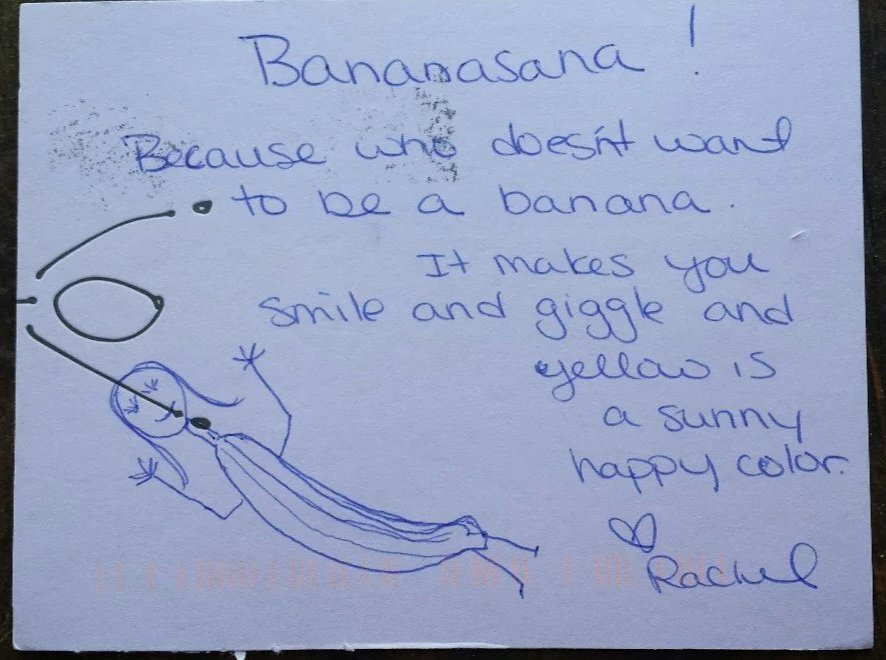 Bananasana !
Because who doesn't want
to be a banana.
It makes you
smile and giggle and
yellow is
a sunny
happy color.
♡
Rachel